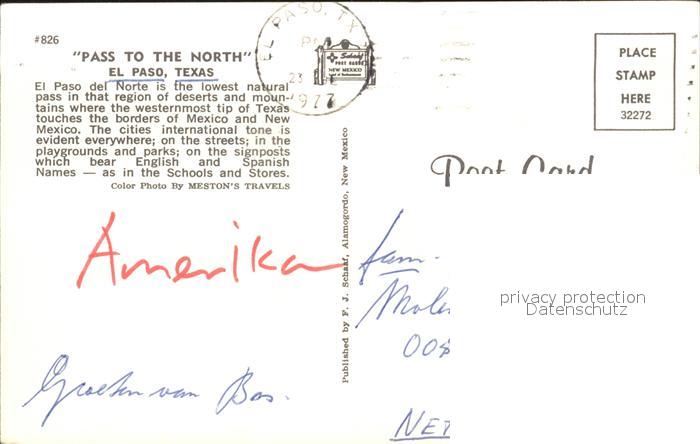 #826
"PASS TO THE NORTH"
EL PASO, TEXAS
El Paso del Norte is the lowest natural
pass in that region of deserts and moun-
tains where the westernmost tip of Texas
touches the borders of Mexico and New
Mexico. The cities international tone is
evident everywhere; on the streets; in the
playgrounds and parks; on the signposts
which bear English and Spanish
Names — as in the Schools and Stores.
Color Photo By MESTON'S TRAVELS
EL PASO, TX
PM
23
1977
Schaaf
POST CARDS
NEW MEXICO
Land of Enchantment
PLACE
STAMP
HERE
32272
Post Card
Published by F. J. Schaaf, Alamogordo, New Mexico
Amerika
Groeten van Bas.
fam.
Mole
005
NET
privacy protection
Datenschutz